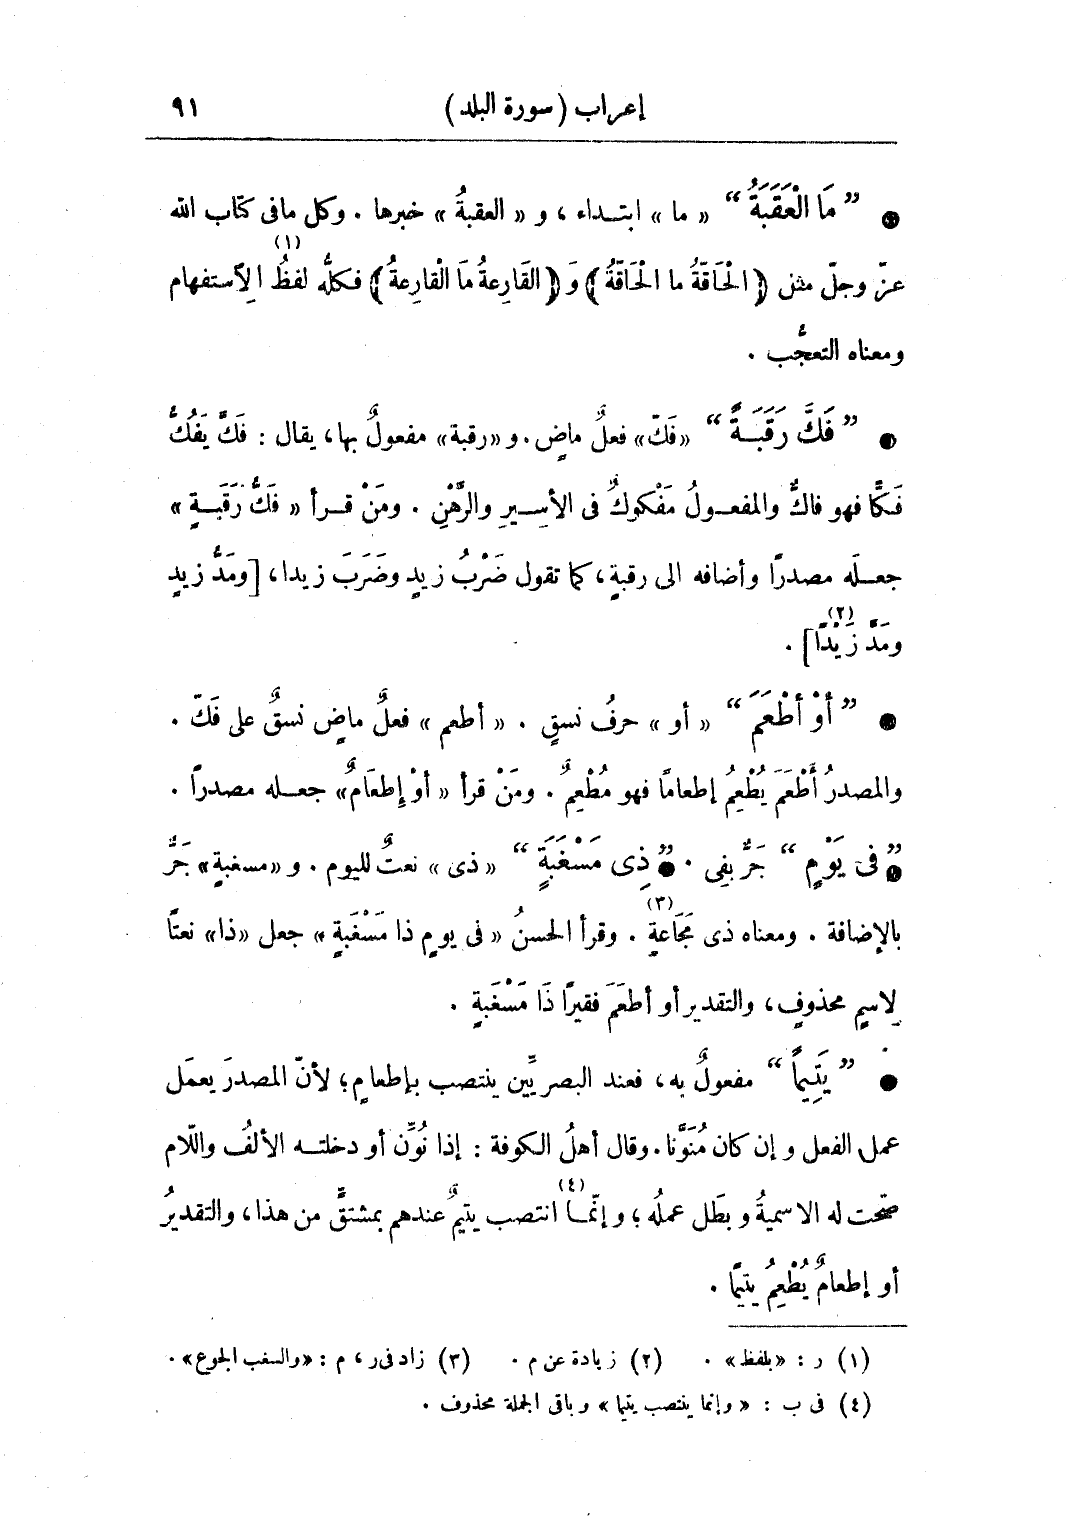 إعراب (سورة البلد) ٩١
● ” مَا الْعَقَبَةُ “ « ما » ابتـداء ، و « العقبةُ » خبرها . وكل مافى كتاب الله
عزّ وجلّ مثل ﴿ الْحَاقّةُ ما الْحَاقّةُ ﴾ وَ ﴿ القَارِعةُ مَا الْقارِعةُ ﴾ فكلُّه لفظُ (١) الِاستفهام
ومعناه التعجُّب .
● ” فَكَّ رَقَبَـةً “ «فَكّ» فعلٌ ماضٍ . و «رقبة» مفعولٌ بها، يقال : فَكَّ يَفُكُّ
فَكًّا فهو فاكٌّ والمفعـولُ مَفْكوكٌ فى الأسـيرِ والرَّهْنِ . ومَنْ قـرأ « فَكُّ رَقَبَـةٍ »
جعـلَه مصدرًا وأضافه الى رقبةٍ ، كما تقول ضَرْبُ زيدٍ وضَرَبَ زيدا، [ومَدُّ زيدٍ
ومَدَّ زَيْدًا (٢)] .
● ” أوْ أطْعَمَ “ « أو » حرفُ نسقٍ . « أطعم » فعلٌ ماضٍ نسقٌ على فَكّ .
والمصدرُ أَطْعَمَ يُطْعِمُ إطعامًا فهو مُطْعِمٌ . ومَنْ قرأ « أوْ إِطعَامٌ» جعـله مصدرًا .
● ” فى يَوْمٍ “ جَرٌّ بفِى . ● ” ذِى مَسْغَبَةٍ “ « ذى » نعتٌ لليوم . و «مسغبةٍ» جَرٌّ
بالإضافة . ومعناه ذى مَجَاعةٍ (٣) . وقرأ الحسنُ « فى يومٍ ذا مَسْغَبةٍ » جعل «ذا» نعتًا
لِاسمٍ محذوفٍ، والتقدير أو أطعَمَ فقيرًا ذَا مَسْغَبةٍ .
● ” يَتِيمًا “ مفعولٌ به، فعند البصريِّين ينتصب بإطعامٍ؛ لأنّ المصدرَ يعمَل
عمل الفعل و إن كان مُنَوَّنا . وقال أهلُ الكوفة : إذا نُوِّن أو دخلتـه الألفُ واللّام
صحّت له الاسميةُ و بطَل عملُه ؛ و إنّمـا (٤) انتصب يتيمٌ عندهم بمشتقٍّ من هذا، والتقديرُ
أو إطعامٌ يُطْعِمُ يتيمًا .
(١) ر : «بلفظ» . (٢) زيادة عن م . (٣) زاد فى ر ، م : «والسغب الجوع» .
(٤) فى ب : « وإنما ينتصب يتيما » وباقى الجملة محذوف .